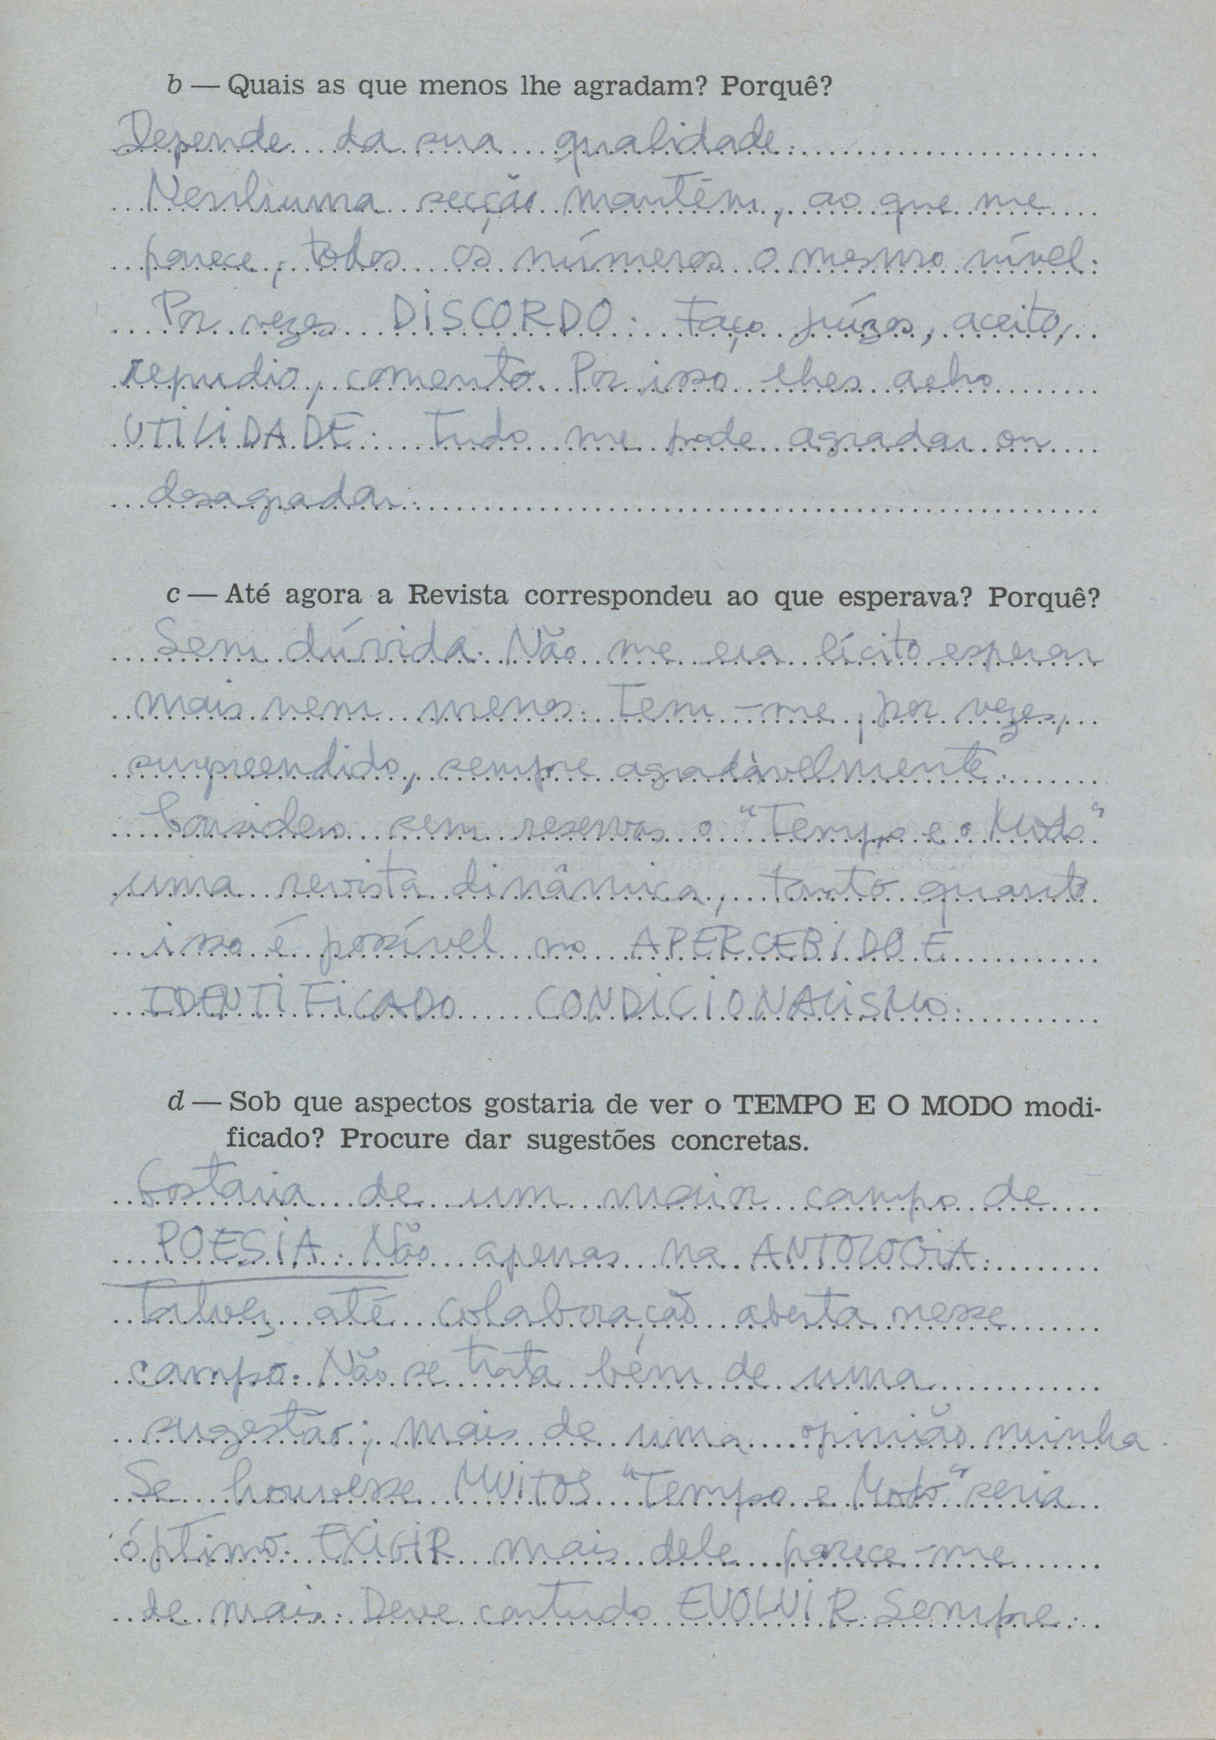 b — Quais as que menos lhe agradam? Porquê?
Depende da sua qualidade.
Nenhuma secção mantém, ao que me
parece, todos os números o mesmo nível.
Por vezes DISCORDO. Faço juízos, aceito,
repudio, comento. Por isso lhes acho
UTILIDADE. Tudo me pode agradar ou
desagradar.
c — Até agora a Revista correspondeu ao que esperava? Porquê?
Sem dúvida. Não me era lícito esperar
mais nem menos. Tem-me, por vezes,
surpreendido, sempre agradàvelmente.
Considero sem reservas o "Tempo e o Modo"
uma revista dinâmica, tanto quanto
isso é possível no APERCEBIDO E
IDENTIFICADO CONDICIONALISMO.
d — Sob que aspectos gostaria de ver o TEMPO E O MODO modi-
ficado? Procure dar sugestões concretas.
Gostaria de um maior campo de
POESIA. Não apenas na ANTOLOGIA.
Talvez até colaboração aberta nesse
campo. Não se trata bem de uma
sugestão; mais de uma opinião minha.
Se houvesse MUITOS "Tempo e Modo" seria
óptimo. EXIGIR mais dele parece-me
de mais. Deve contudo EVOLUIR. Sempre.